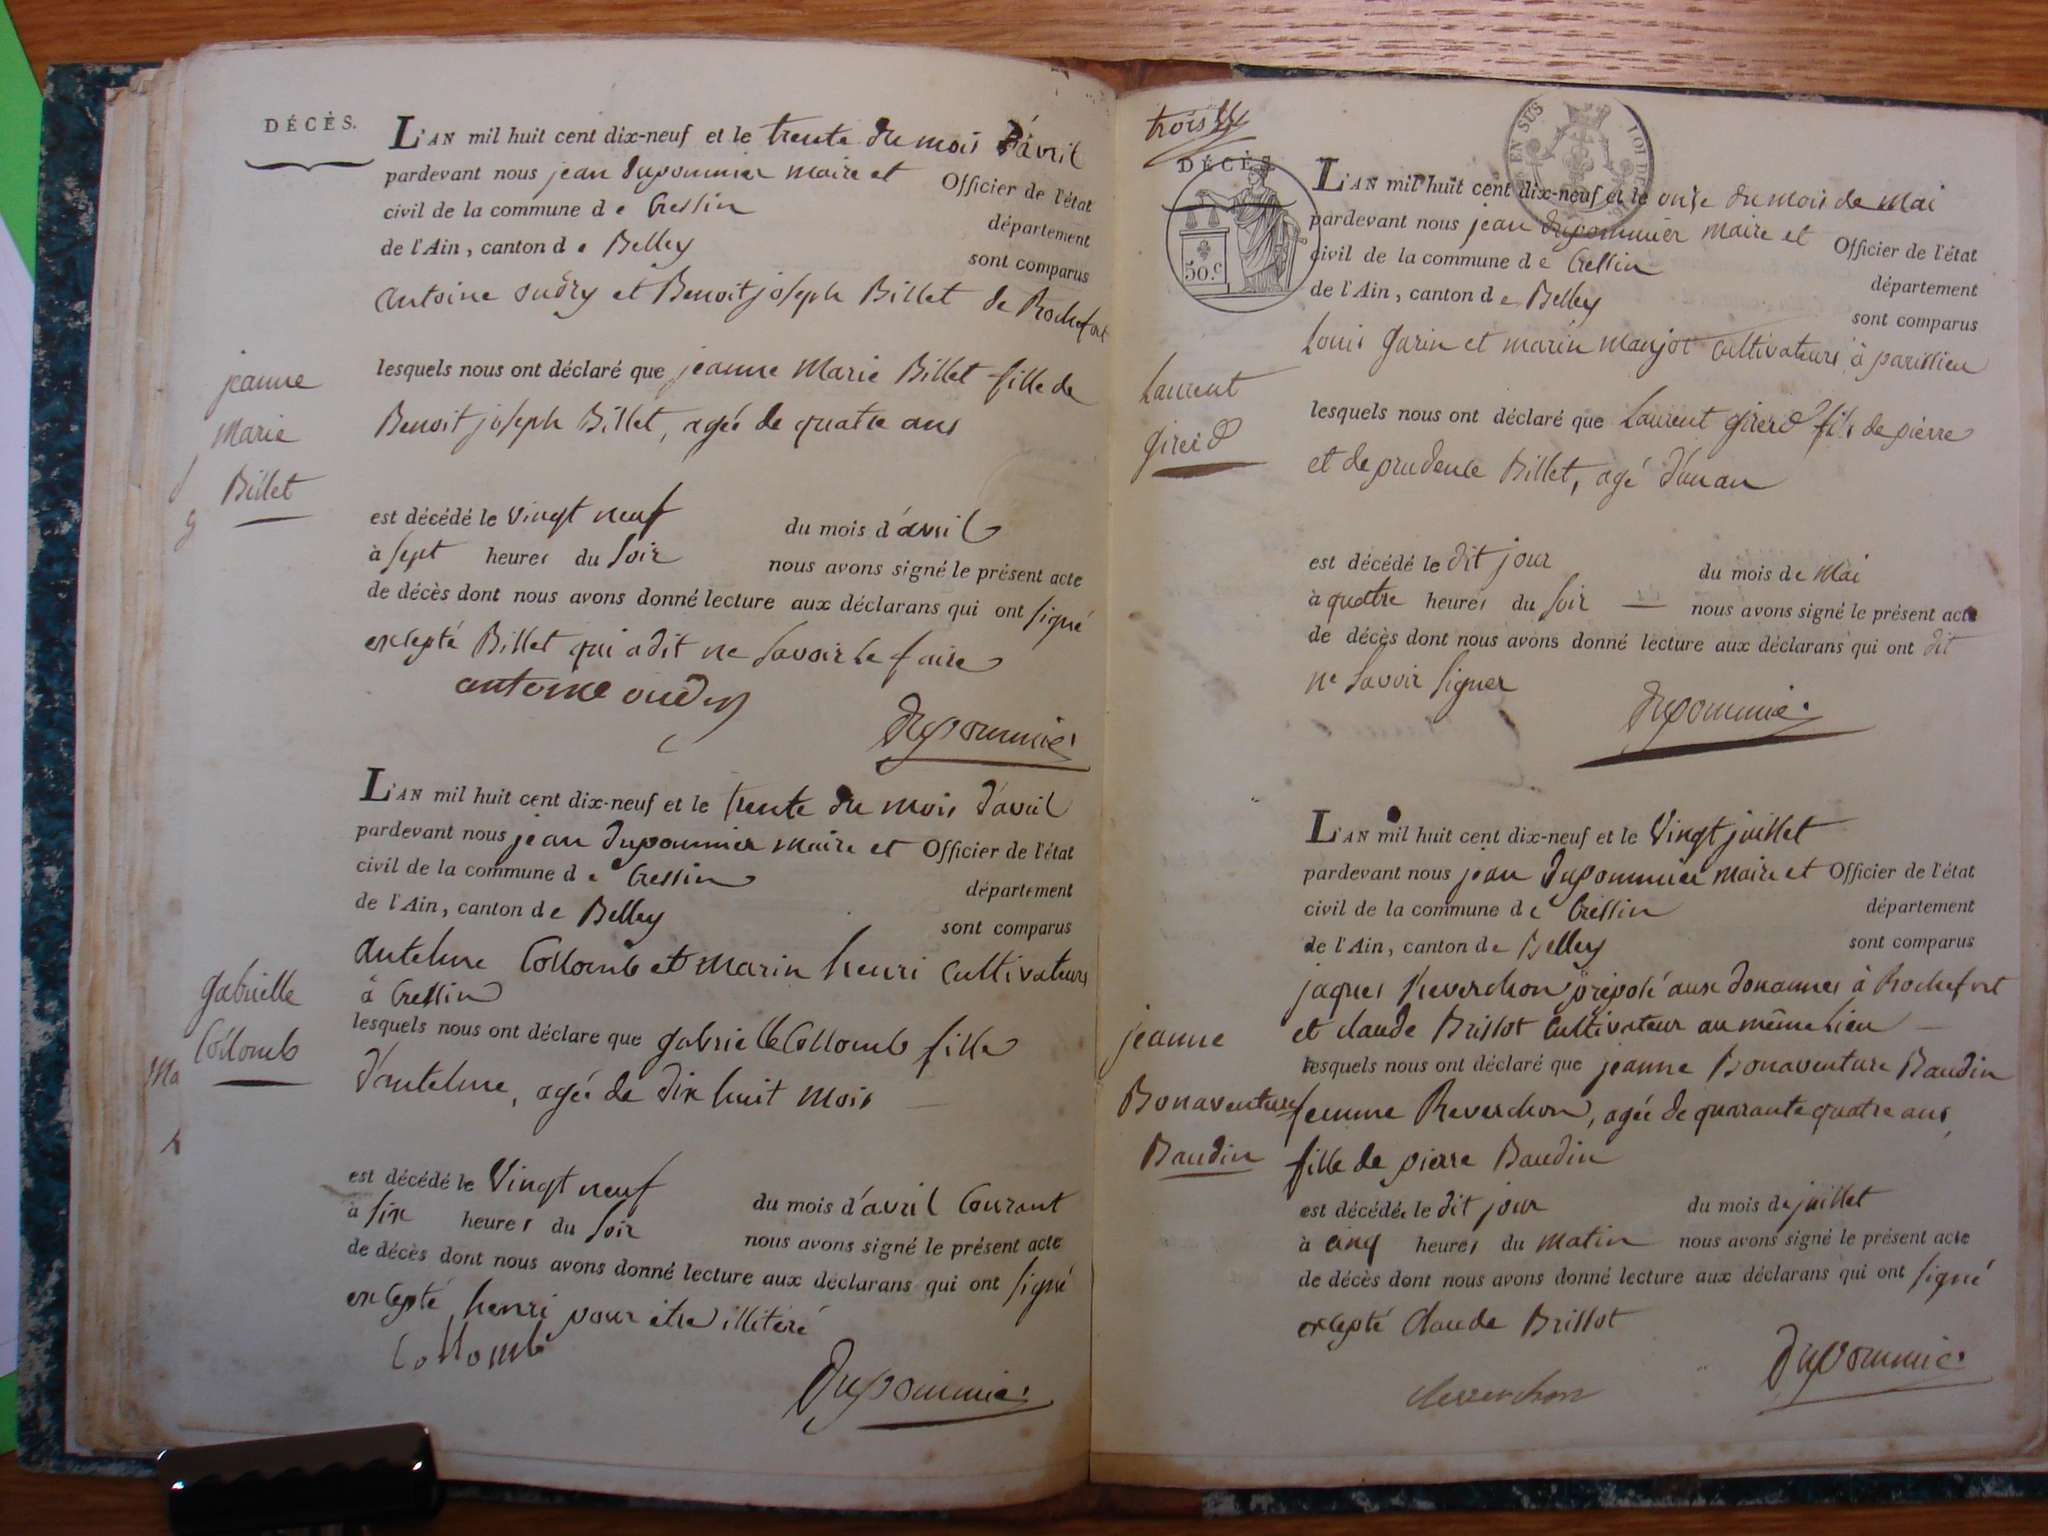 DÉCÈS.
L'AN mil huit cent dix-neuf et le trente du mois d'avril
pardevant nous jean dupommier maire et Officier de l'état
civil de la commune de Cressin département
de l'Ain, canton de Belley sont comparus
antoine oudry et Benoit joseph Billet de Rochefort
jeanne
Marie
Billet
lesquels nous ont déclaré que jeanne Marie Billet fille de
Benoit joseph Billet, agée de quatre ans
est décédé le vingt neuf du mois d'avril
à sept heures du soir nous avons signé le présent acte
de décès dont nous avons donné lecture aux déclarans qui ont signé
excepté Billet qui a dit ne savoir le faire
antoine oudry
dupommier
L'AN mil huit cent dix-neuf et le trente du mois d'avril
pardevant nous jean dupommier maire et Officier de l'état
civil de la commune de Cressin département
de l'Ain, canton de Belley sont comparus
antelme Collomb et marin henri cultivateurs
à Cressin
gabrielle
Collomb
lesquels nous ont déclare que gabrielle Collomb fille
d'antelme, agée de dix huit mois
est décédé le vingt neuf du mois d'avril Courant
à six heures du soir nous avons signé le présent acte
de décès dont nous avons donné lecture aux déclarans qui ont signé
excepté henri pour être illitéré
Collomb
dupommier
trois
EN SUS
LOI DE
DÉCÈS
50.c
L'AN mil huit cent dix-neuf et le onse du mois de mai
pardevant nous jean dupommier maire et Officier de l'état
civil de la commune de Cressin département
de l'Ain, canton de Belley sont comparus
Louis garin et marin manjot cultivateurs à parissieu
Laurent
gireid
lesquels nous ont déclaré que Laurent gireid fils de pierre
et de prudence Billet, agé d'un an
est décédé le dit jour du mois de mai
à quatre heures du soir nous avons signé le présent acte
de décès dont nous avons donné lecture aux déclarans qui ont dit
ne savoir signer
dupommier
L'AN mil huit cent dix-neuf et le vingt juillet
pardevant nous jean dupommier maire et Officier de l'état
civil de la commune de Cressin département
de l'Ain, canton de Belley sont comparus
jaques Reverchon préposé aux douannes à Rochefort
et claude Brissot cultivateur au même lieu
jeanne
Bonaventure
Baudin
lesquels nous ont déclaré que jeanne Bonaventure Baudin
femme Reverchon, agée de quarante quatre ans,
fille de pierre Baudin
est décédée le dit jour du mois de juillet
à cinq heures du matin nous avons signé le présent acte
de décès dont nous avons donné lecture aux déclarans qui ont signé
excepté claude Brissot
Reverchon
dupommier